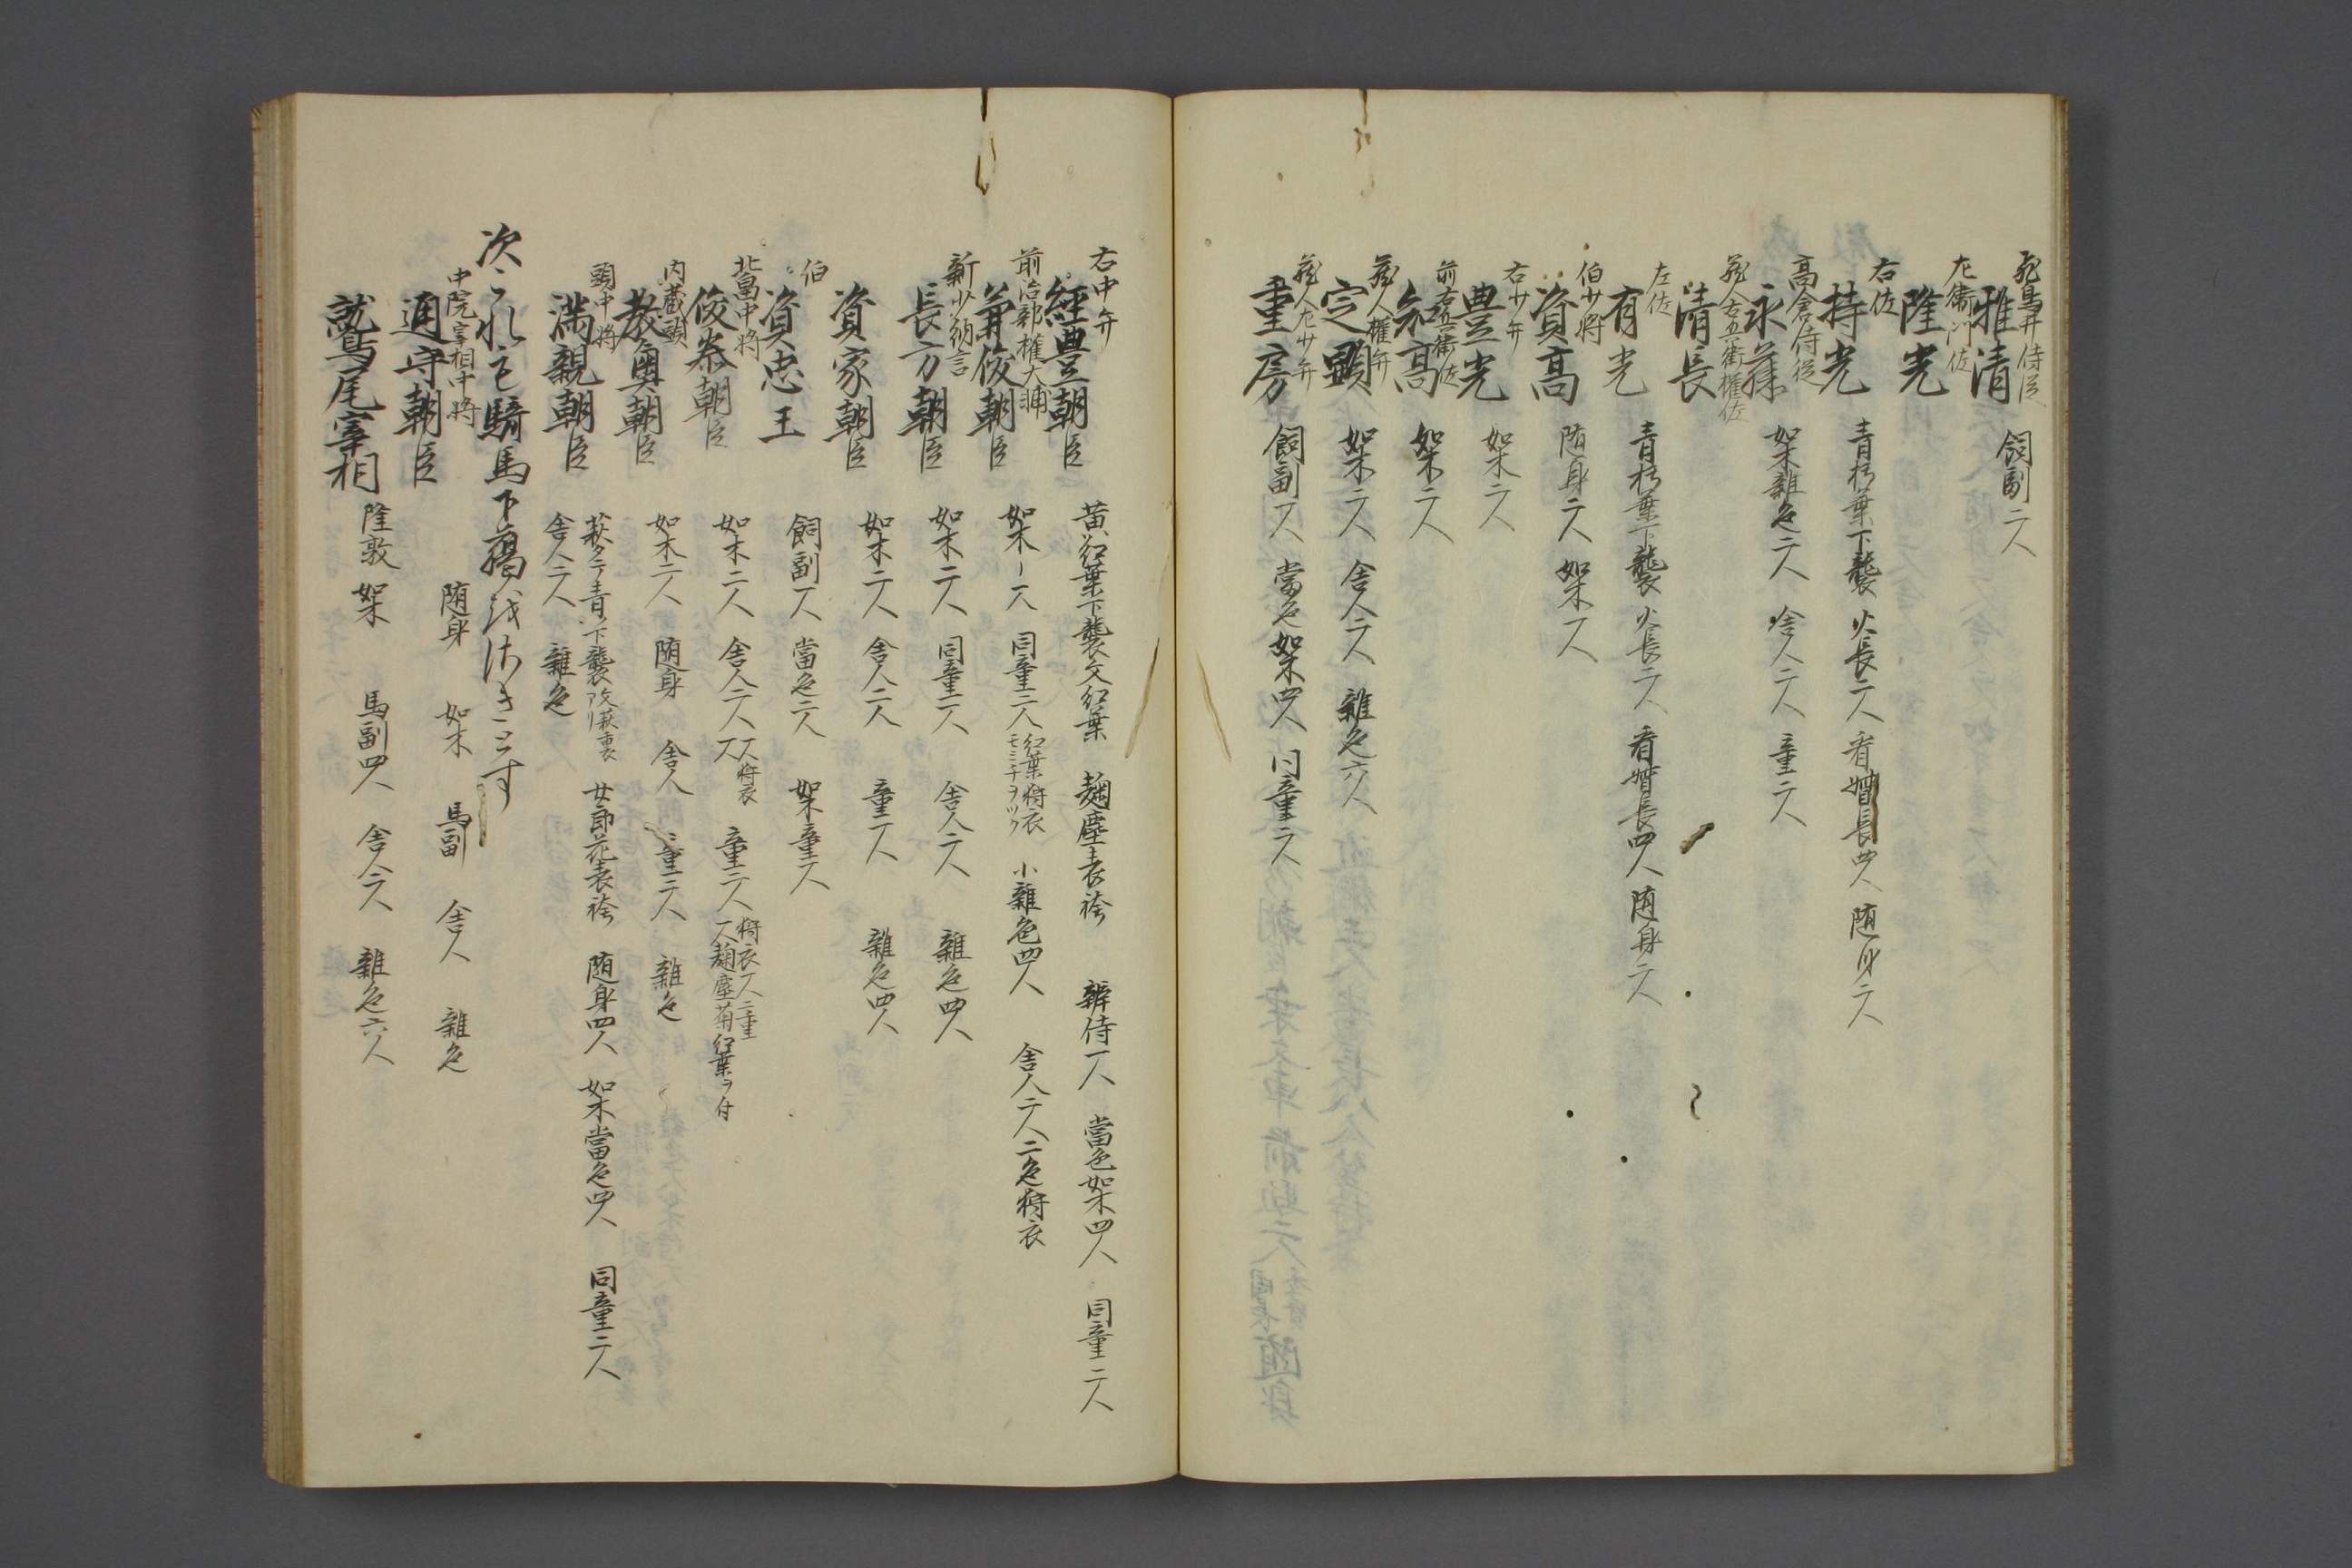 飛鳥井侍従
雅清 飼副二人
左衛門佐
隆光
右佐
持光 青朽葉下襲 火長二人 看督長四人 随身二人
高倉侍従
永藤 如木雑色二人 舎人二人 童二人
蔵人右兵衛権佐
清長
左佐
有光 青朽葉下襲 火長二人 看督長四人 随身二人
伯少将
資高 随身二人 如木一人
右少弁
豊光 如木二人
前右兵衛佐
知高 如木二人
蔵人権弁
定顕 如木二人 舎人二人 雑色六人
蔵人左少弁
重房 飼副一人 当色如木四人 同童二人
右中弁
経豊朝臣 黄紅葉下襲文紅葉 麹塵表袴 辨侍一人 當色如木四人 同童二人
前治部権大輔
兼俊朝臣 如木一人 同童二人 紅葉狩衣モミチヲツク 小雑色四人 舎人二人二色狩衣
新少納言
長方朝臣 如木二人 同童二人 舎人二人 雑色四人
資家朝臣 如木二人 舎人二人 童一人 雑色四人
伯
資忠王 飼副一人 當色二人 如木童二人
北畠中将
俊泰朝臣 如木二人 舎人二人 狩衣 童二人 狩衣一人二重 一人麹塵菊紅葉ヲ付
内蔵頭
教興朝臣 如木二人 随身 舎人 童二人 雑色
頭中将
満親朝臣 萩タテ青下襲 改萩裏 女郎花表袴 随身四人 如木當色四人 同童二人
舎人二人 雑色
次これも騎馬下臈をさきとす
中院宰相中将
通守朝臣 随身 如木 馬副 舎人 雑色
鷲尾宰相 隆敦 如木 馬副四人 舎人二人 雑色六人